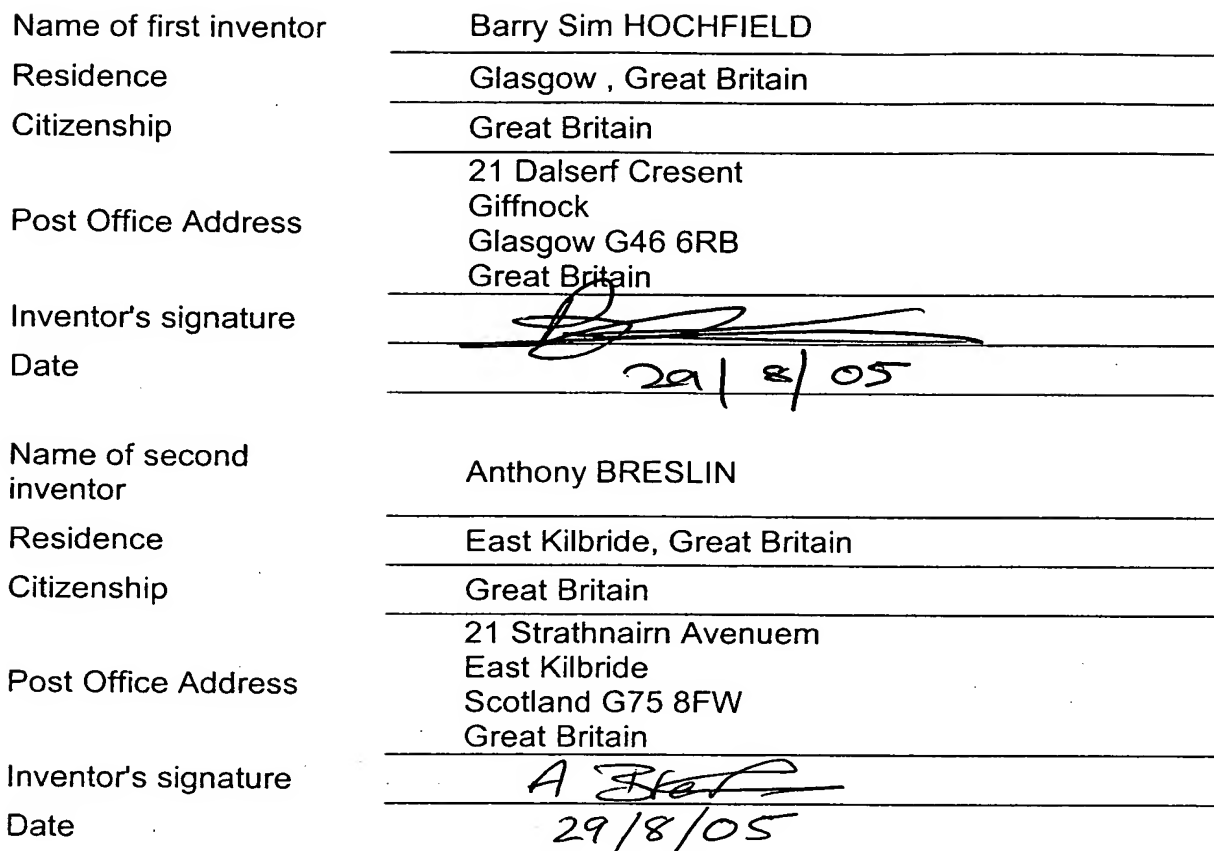 Name of first inventor Barry Sim HOCHFIELD
Residence Glasgow , Great Britain
Citizenship Great Britain
Post Office Address 21 Dalserf Cresent
Giffnock
Glasgow G46 6RB
Great Britain
Inventor's signature
Date 29/8/05
Name of second
inventor Anthony BRESLIN
Residence East Kilbride, Great Britain
Citizenship Great Britain
Post Office Address 21 Strathnairn Avenuem
East Kilbride
Scotland G75 8FW
Great Britain
Inventor's signature A
Date 29/8/05